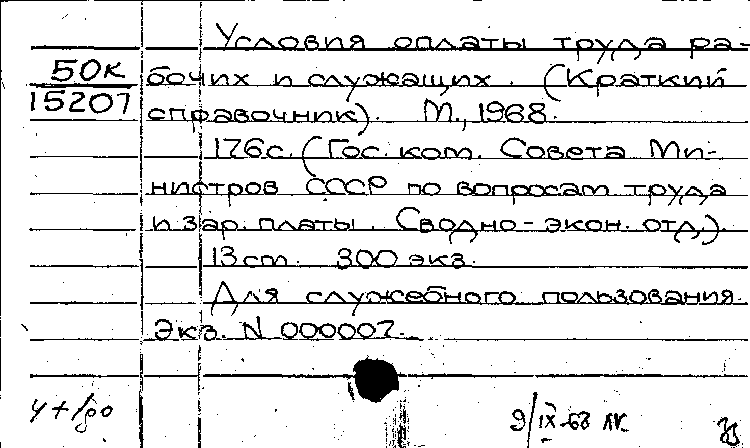 Условия оплаты труда ра-
50К
15207
бочих и служащих. (Краткий
справочник). М., 1968.
176с. (Гос. ком. Совета Ми-
нистров СССР по вопросам труда
и зар. платы. Сводно-экон. отд.).
13 см. 300 экз.
Для служебного пользования.
Экз. N 000007.
9/IX-68